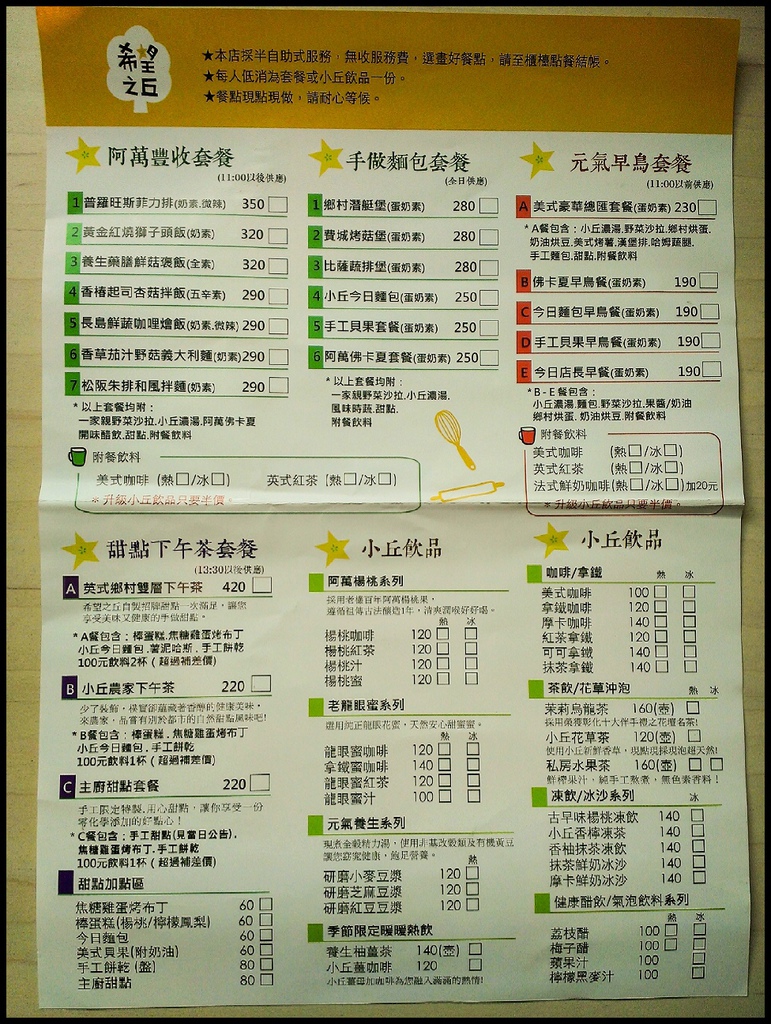 希望之丘
★本店採半自助式服務，無收服務費，選畫好餐點，請至櫃檯點餐結帳。
★每人低消為套餐或小丘飲品一份。
★餐點現點現做，請耐心等候。
阿萬豐收套餐
(11:00以後供應)
1 普羅旺斯菲力排(奶素.微辣) 350
2 黃金紅燒獅子頭飯(奶素) 320
3 養生藥膳鮮菇褒飯(全素) 320
4 香椿起司杏菇拌飯(五辛素) 290
5 長島鮮蔬咖哩燴飯(奶素.微辣) 290
6 香草茄汁野菇義大利麵(奶素) 290
7 松阪朱排和風拌麵(奶素) 290
*以上套餐均附：
一家親野菜沙拉.小丘濃湯.阿萬佛卡夏
開味醋飲.甜點.附餐飲料
附餐飲料
美式咖啡 (熱□/冰□) 英式紅茶 (熱□/冰□)
*升級小丘飲品只要半價。
手做麵包套餐
(全日供應)
1 鄉村潛艇堡(蛋奶素) 280
2 費城烤菇堡(蛋奶素) 280
3 比薩蔬排堡(蛋奶素) 280
4 小丘今日麵包(蛋奶素) 250
5 手工貝果套餐(蛋奶素) 250
6 阿萬佛卡夏套餐(蛋奶素) 250
*以上套餐均附：
一家親野菜沙拉.小丘濃湯.
風味時蔬.甜點.
附餐飲料
元氣早鳥套餐
(11:00以前供應)
A 美式豪華總匯套餐(蛋奶素) 230
*A餐包含：小丘濃湯.野菜沙拉.鄉村烘蛋.
奶油烘豆.美式烤薯.漢堡排.哈姆蔬腿.
手工麵包.甜點.附餐飲料
B 佛卡夏早鳥餐(蛋奶素) 190
C 今日麵包早鳥餐(蛋奶素) 190
D 手工貝果早鳥餐(蛋奶素) 190
E 今日店長早餐(蛋奶素) 190
*B-E餐包含：
小丘濃湯.麵包.野菜沙拉.果醬/奶油
鄉村烘蛋.奶油烘豆.附餐飲料
附餐飲料
美式咖啡 (熱□/冰□)
英式紅茶 (熱□/冰□)
法式鮮奶咖啡(熱□/冰□)加20元
*升級小丘飲品只要半價。
甜點下午茶套餐
(13:30以後供應)
A 英式鄉村雙層下午茶 420
希望之丘自製招牌甜點一次滿足，讓您
享受美味又健康的手做甜點。
*A餐包含：棒蛋糕.焦糖雞蛋烤布丁
小丘今日麵包.薯泥哈斯.手工餅乾
100元飲料2杯（超過補差價）
B 小丘農家下午茶 220
少了裝飾，樸實卻蘊藏著香醇的健康美味，
來農家，品嘗有別於都市的自然甜點風味吧!
*B餐包含：棒蛋糕.焦糖雞蛋烤布丁
小丘今日麵包.手工餅乾
100元飲料1杯（超過補差價）
C 主廚甜點套餐 220
手工限定特製.用心甜點，讓你享受一份
零化學添加的好點心！
*C餐包含：手工甜點(見當日公告).
焦糖雞蛋烤布丁.手工餅乾
100元飲料1杯（超過補差價）
甜點加點區
焦糖雞蛋烤布丁 60
棒蛋糕(楊桃/檸檬鳳梨) 60
今日麵包 60
美式貝果(附奶油) 60
手工餅乾(盤) 80
主廚甜點 80
小丘飲品
阿萬楊桃系列
採用老欉百年阿萬楊桃果，
遵循祖傳古法釀造1年，清爽潤喉好好喝。
熱 冰
楊桃咖啡 120
楊桃紅茶 120
楊桃汁 120
楊桃蜜 120
老龍眼蜜系列
選用純正龍眼花蜜，天然安心甜蜜蜜。
熱 冰
龍眼蜜咖啡 120
拿鐵蜜咖啡 140
龍眼蜜紅茶 120
龍眼蜜汁 100
元氣養生系列
現煮金穀精力湯，使用非基改穀類及有機黃豆
讓您窈窕健康，飽足營養。
熱
研磨小麥豆漿 120
研磨芝麻豆漿 120
研磨紅豆豆漿 120
季節限定暖暖熱飲
養生柚薑茶 140(壺)
小丘薑咖啡 120
小丘薑母加咖啡為您融入滿滿的熱情!
小丘飲品
咖啡/拿鐵 熱 冰
美式咖啡 100
拿鐵咖啡 120
摩卡咖啡 140
紅茶拿鐵 120
可可拿鐵 140
抹茶拿鐵 140
茶飲/花草沖泡 熱 冰
茉莉烏龍茶 160(壺)
採用榮獲彰化十大伴手禮之花壇名茶!
小丘花草茶 120(壺)
使用小丘新鮮香草，現點現採現泡超天然!
私房水果茶 160(壺)
鮮榨果汁，純手工熬煮，無色素香料！
凍飲/冰沙系列 冰
古早味楊桃凍飲 140
小丘香檸凍茶 140
香柚抹茶凍飲 140
抹茶鮮奶冰沙 140
摩卡鮮奶冰沙 140
健康醋飲/氣泡飲料系列
熱 冰
荔枝醋 100
梅子醋 100
蘋果汁 100
檸檬黑麥汁 100